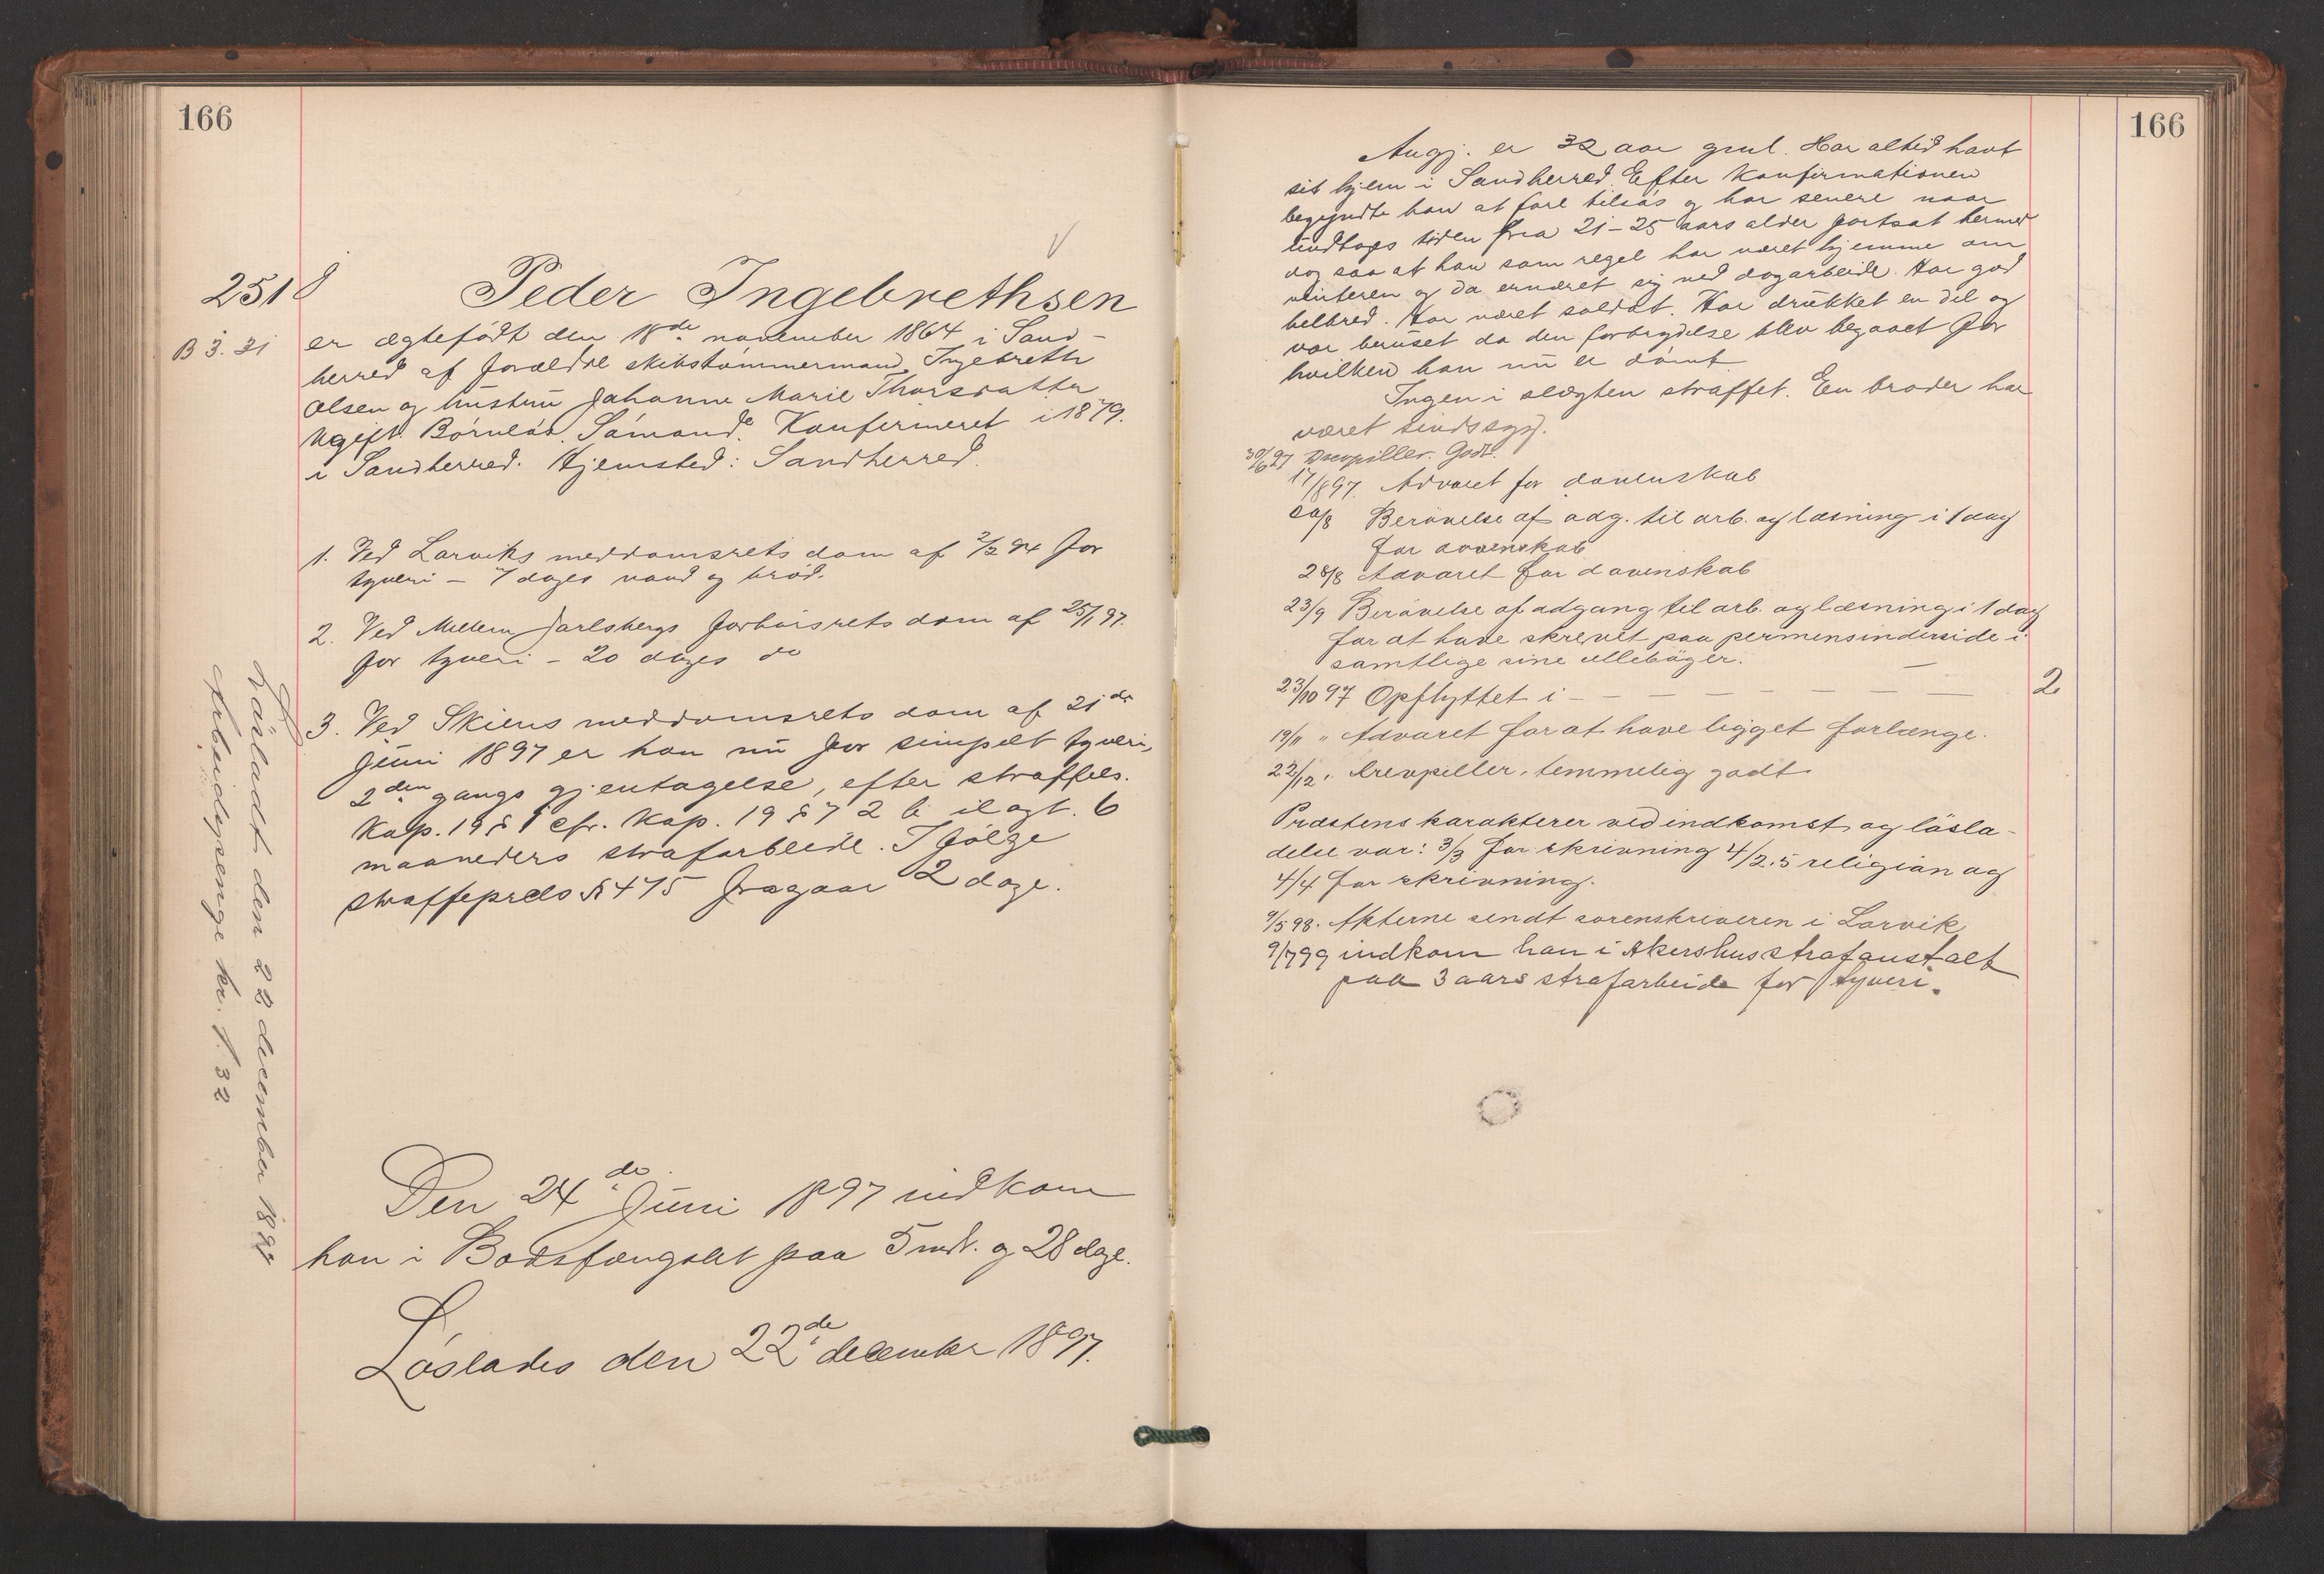 166
2518
B 3. 31
Peder Ingebrethsen
er ægtefødt den 18de november 1864 i Sand-
herred af forældre skibstømmermand Ingebreth
Olsen og hustru Johanne Marie Thorsdatter
Ugift. Børnløs. Sømand. Konfirmeret i 1879.
i Sandherred. Hjemsted: Sandherred.
1. Ved Larviks meddomsrets dom af 2/2 94 for
tyveri - 7 dages vand og brød.
2. Ved Mellem Jarlsbergs forhørsrets dom af 25/1 97.
for tyveri - 20 dages do
3. Ved Skiens meddomsrets dom af 21de
juni 1897 er han nu for simpelt tyveri,
2den gangs gjentagelse, efter straffels.
Kap. 19 § 1 cfr. Kap. 19 § 7 2 b ilagt. 6
maaneders strafarbeide. I følge
straffeprcls § 475 fragaar 2 dage.
Den 24de Juni 1897 indkom
han i Bodsfængslet paa 5 mdr. og 28 dage.
Løslades den 22de december 1897.
Løsladt den 22 december 1897
Arbeidspenge kr. 1.32
166
Angj. er 32 aar gml. Har altid havt
sit hjem i Sandherred. Efter Konfirmationen
begyndte han at fare tilsøs og har senere naar
undtages tiden fra 21-25 aars alder fortsat hermed
dog saa at han som regel har været hjemme om
vinteren og da ernæret sig ved dagarbeide. Har god
helbred. Har været soldat. Har drukket en del og
var beruset da den forbrydelse blev begaaet for
hvilken han nu er dømt.
Ingen i slægten straffet. En broder har
været sindssyg.
30/6 97 Drevpiller. Godt.
17/8 97. Advaret for dovenskab
20/8 Berøvelse af adg. til arb. og læsning i 1 dag
for dovenskab
28/8 Advaret for dovenskab
23/9 Berøvelse af adgang til arb. og læsning i 1 dag
for at have skrevet paa permensinderside i
samtlige sine ellebøger.
23/10 97 Opflyttet i - - - - - - - 2.
19/11 " Advaret for at have ligget forlænge.
22/12 " Drevpiller, temmelig godt.
Præstens karakterer ved indkomst og løsla-
delse var: 3/3 for skrivning 4/2.5 religion og
4/4 for skrivning.
9/5 98. Akterne sendt sorenskriveren i Larvik
9/7 99 indkom han i Akershus strafanstalt
paa 3 aars strafarbeide for tyveri.